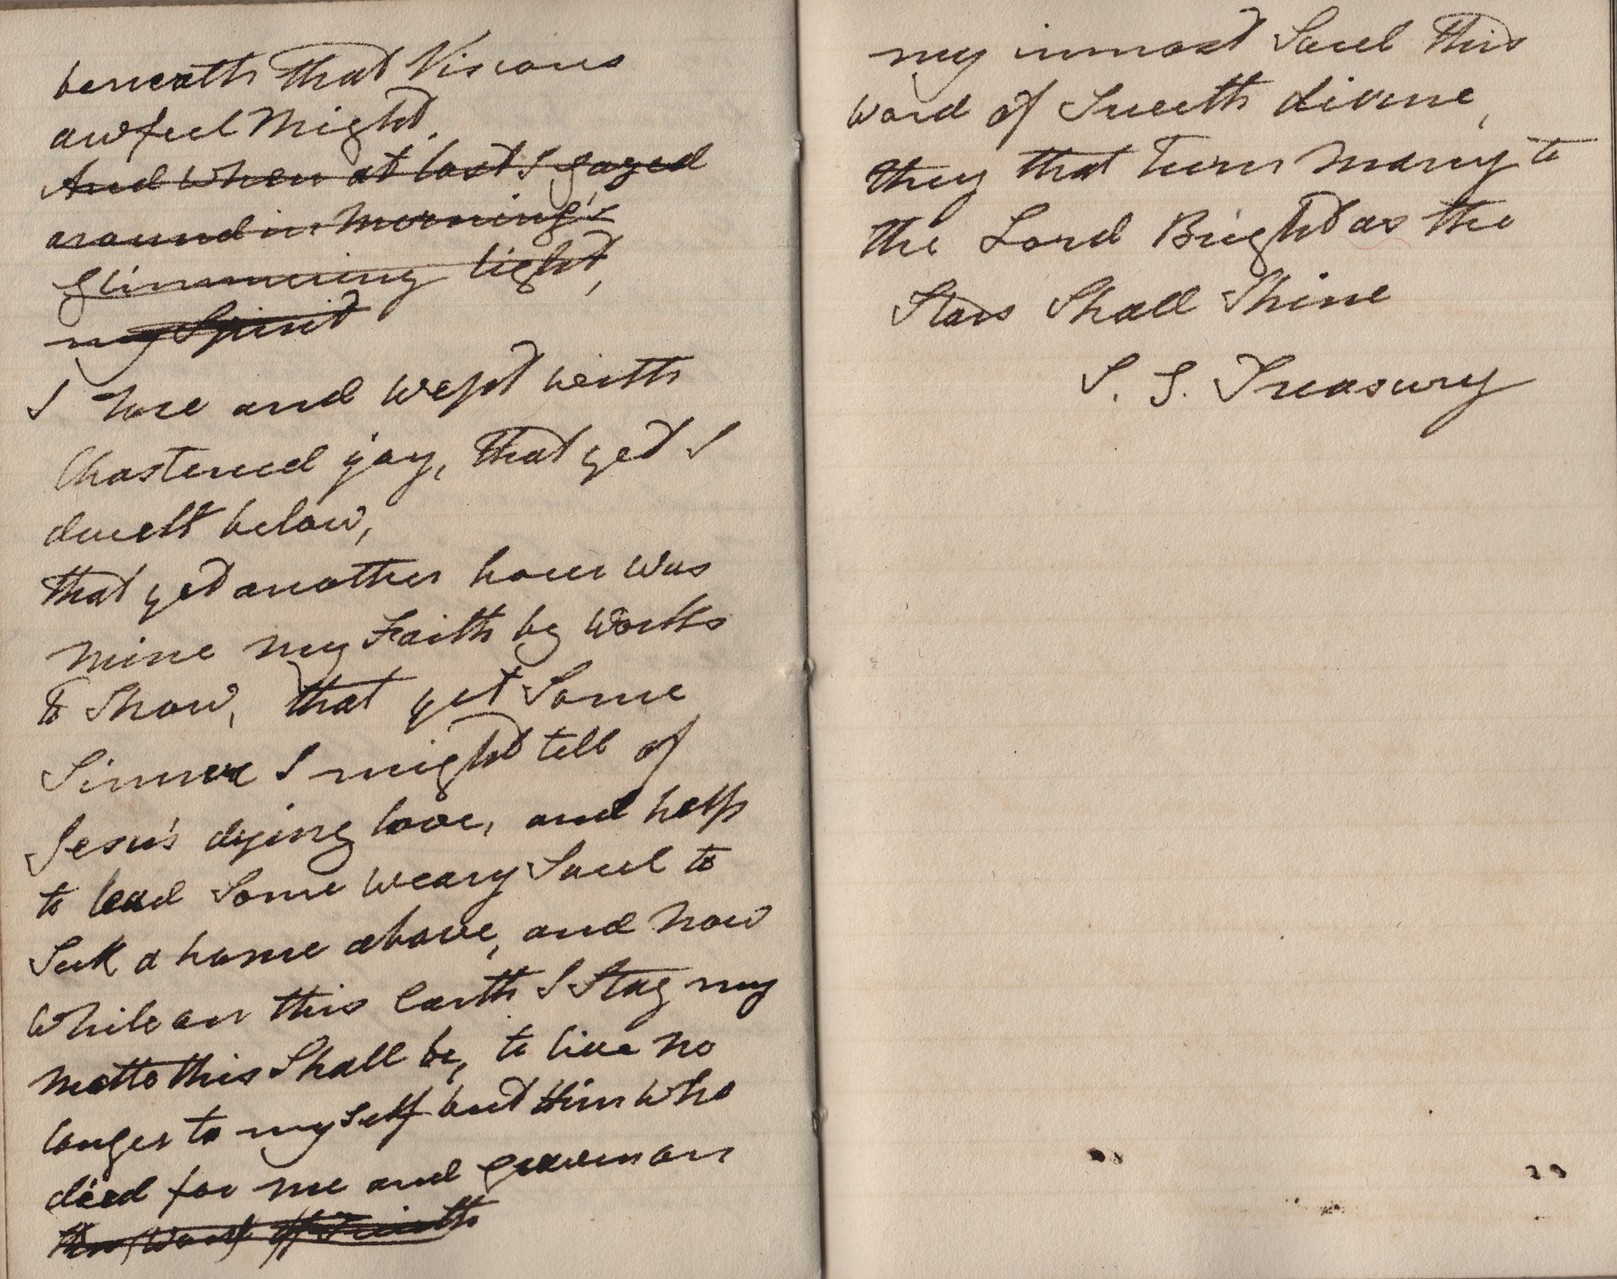 beneath that Visions
awful Might.
And When at last I gazed
around in Morning's
glimmering light,
my Spirit
I rose and wept with
Chastened joy, that yet I
dwelt below,
that yet another hour was
mine my Faith by Works
to Show, that yet Some
Sinner I might tell of
Jesu's dying love, and help
to lead Some weary Soul to
Seek a home above, and now
While on this Earth I Stay my
motto this Shall be, to live no
longer to myself but Him Who
died for me and graven on
the Word of Truth
my inmost Soul this
word of Trueth divine,
they that Turn Many to
the Lord Bright as the
Stars Shall Shine
S. S. Treasury